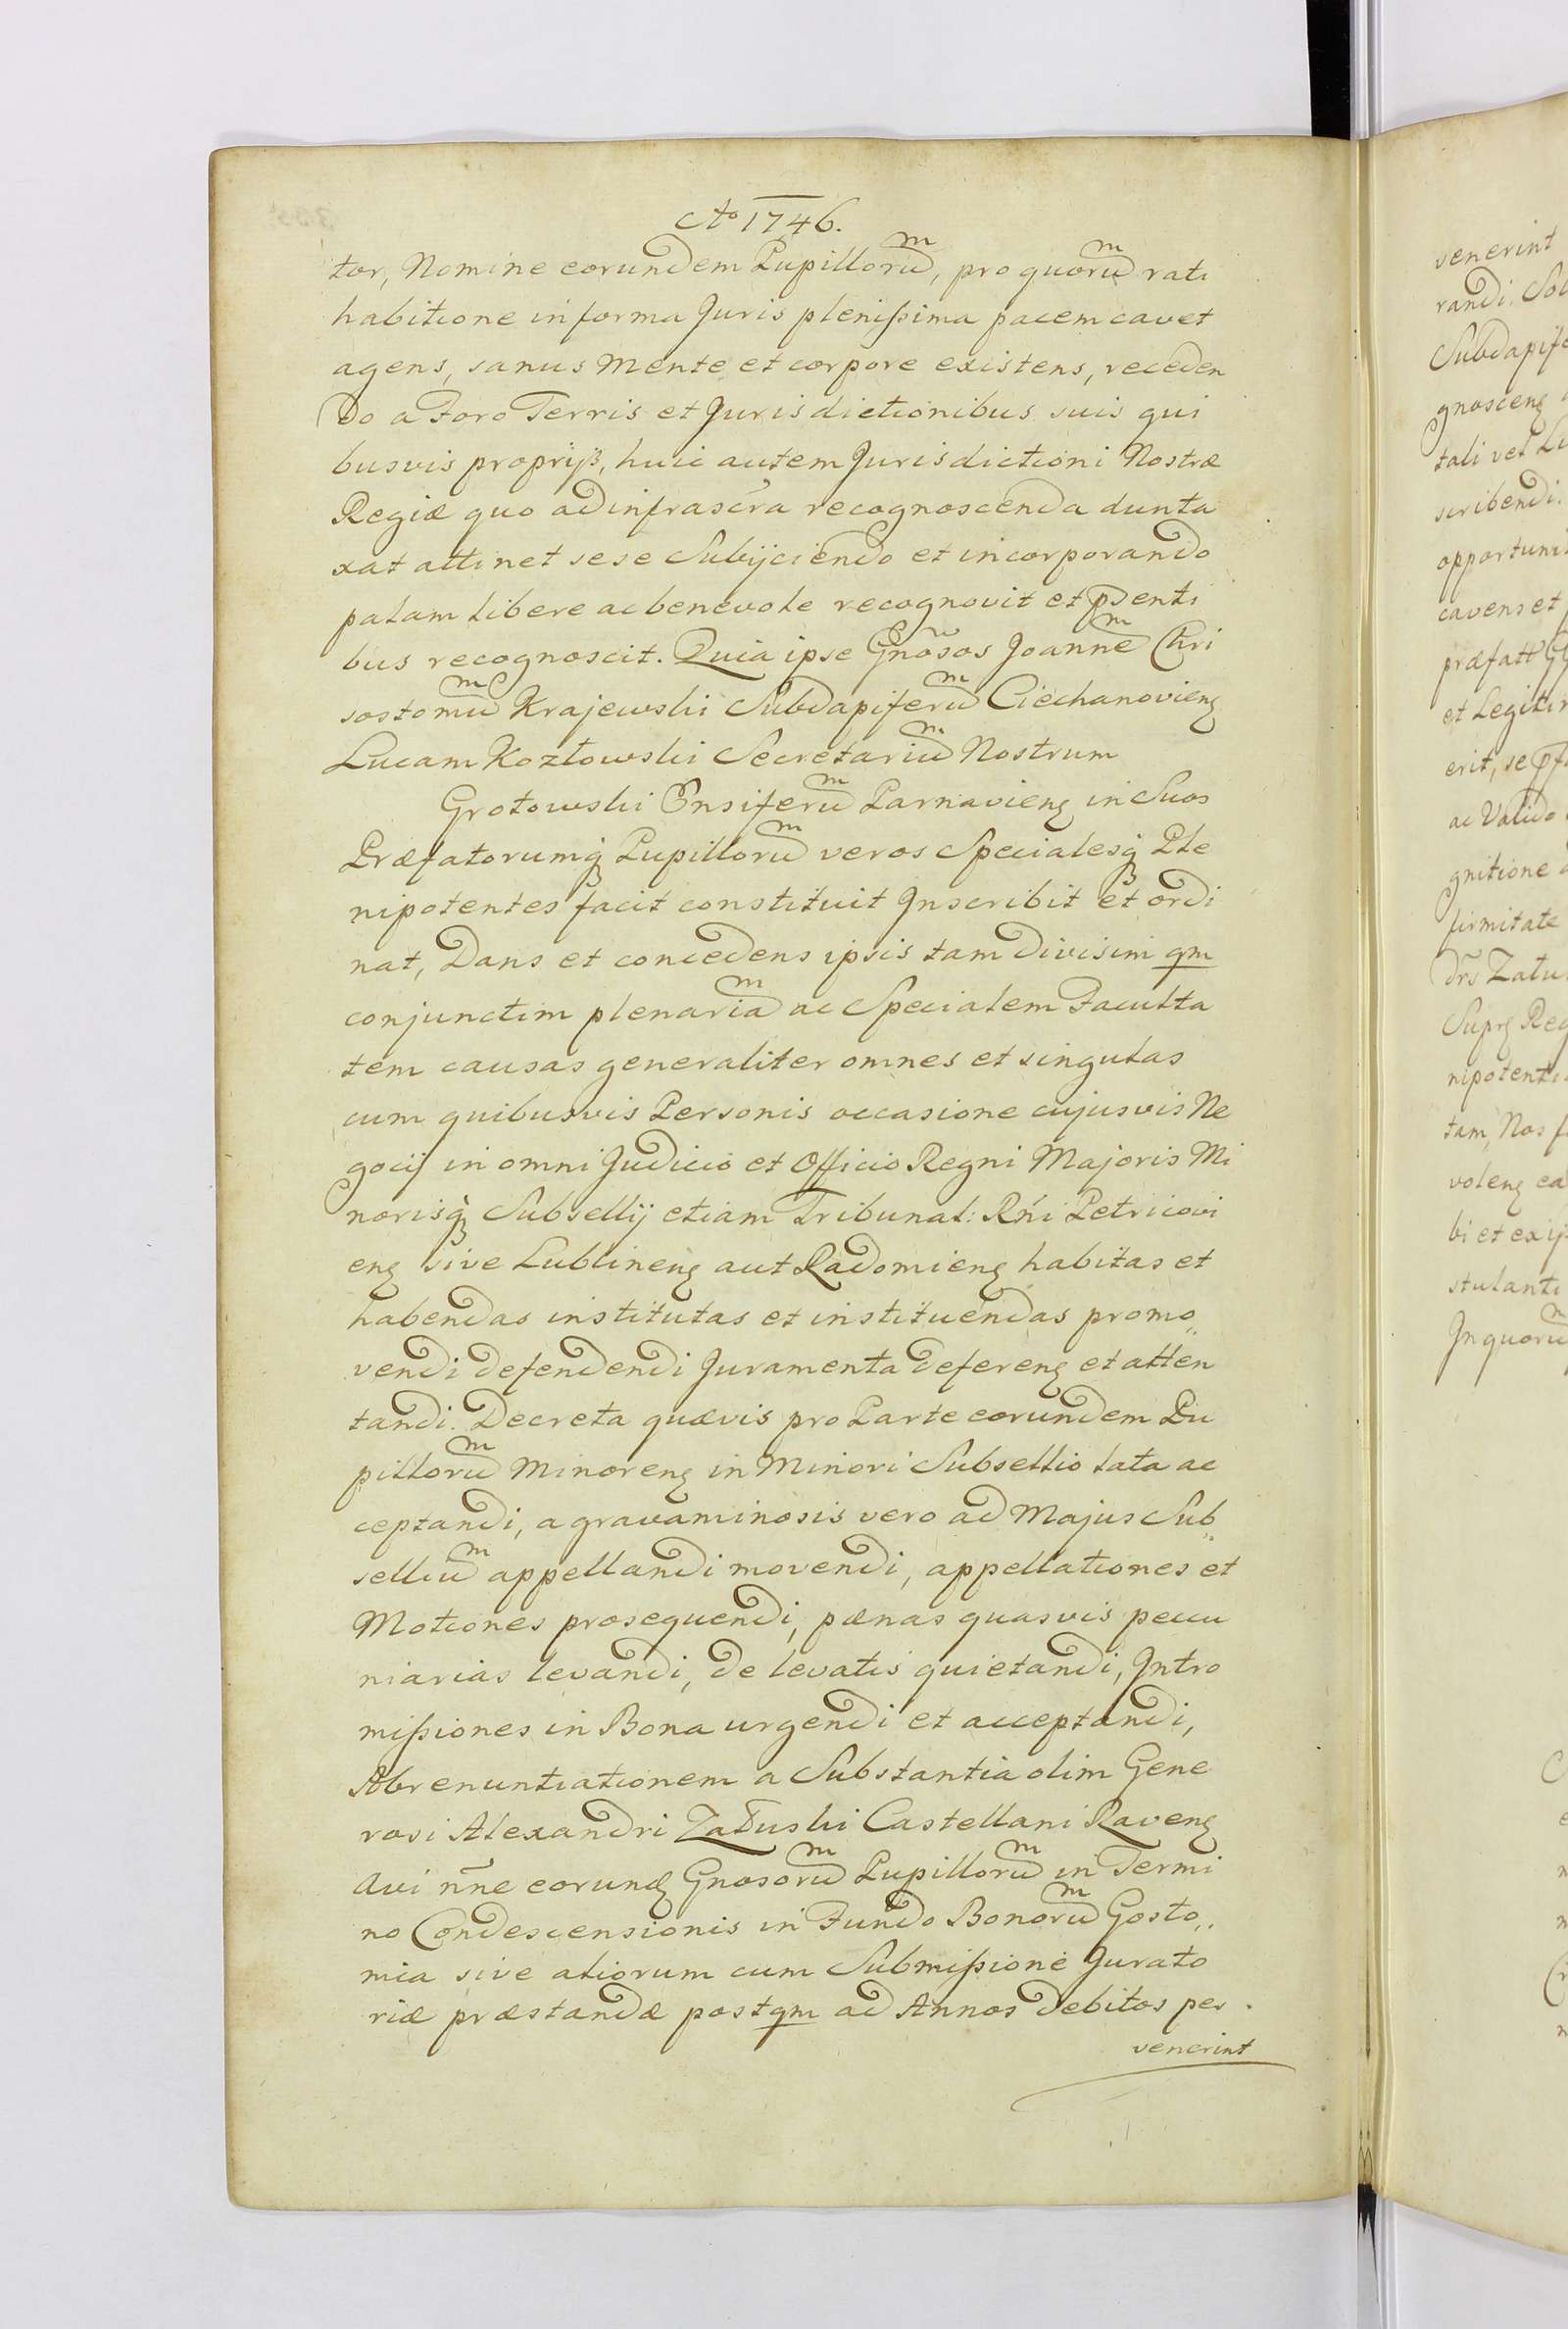 Aô 1746.
tor, Nomine eorundem Pupilloru͞m, pro quoru͞m rati
habitione in forma Juris plenissima pacem cavet
agens, sanus Mente et corpore existens, receden
do a Foro Terris et Jurisdictionibus suis qui
busvis proprijs, huic autem Jurisdictioni Nostræ
Regiæ quo ad infrascr̃a recognoscenda dunta
xat attinet sese Subijciendo et incorporando
palam libere ac benevole recognovit et pñsenti
bus recognoscit. Quia ipse Gnõsos Joanne͞m Chri
sostomu͞m Krajewski Subdapiferu͞m Ciechanovieng
Lucam Kozłowski Secretariu͞m Nostrum
Grotowski Ensiferu͞m Parnavieng in Suos
Præfatorumq̃ Pupilloru͞m veros Specialesq̃ Ple
nipotentes facit constituit Inscribit et ordi
nat, Dans et concedens ipsis tam divisim qm
conjunctim plenaria͞m ac Specialem Faculta
tem causas generaliter omnes et singulas
cum quibusvis Personis occasione cujusvis Ne
gocij in omni Judicio et Officio Regni Majoris Mi
norisq̃ Subsellij etiam Tribunal: Rńi Petricovi
eng sive Lublineng aut Radomieng habitas et
habendas institutas et instituendas promo„
vendi defendendi Juramenta defereng et atten
tandi. Decreta quævis pro Parte eorundem Pu
pilloru͞m Minoreng in Minori Subsellio lata ac
ceptandi, a gravaminosis vero ad Majus Sub„
selliu͞m appellandi movendi, appellationes et
Motiones prosequendi, pænas quasvis pecu
niarias levandi, de levatis quietandi, Intro
missiones in Bona urgendi et acceptandi,
Abrenuntiationem a Substantia olim Gene
rosi Alexandri Załuski Castellani Raveng
Avi ñne eorund Gnosoru͞m Pupilloru͞m in Termi
no Condescensionis in Fundo Bonoru͞m Gosto„
mia sive aliorum cum Submissione Jurato
riæ præstandæ postqm ad Annos debitos per
venerint
venerint
randi. Sol
Subdapife
gnosceng
tali vel Lu
scribendi.
opportuni
cavens et
præfatt
et Legiti
erit, se
ac Valido
gnitione
firmitate
drs Zału
Suprg Reg
nipotenti
tam, Nos f
voleng ea
bi et ex ip
stulanti
In quoru͞